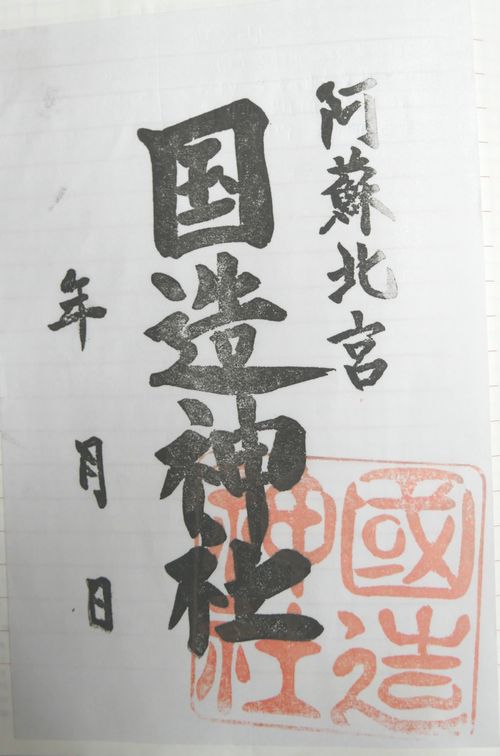 阿蘇北宮
国造神社
年月日
國造
神社